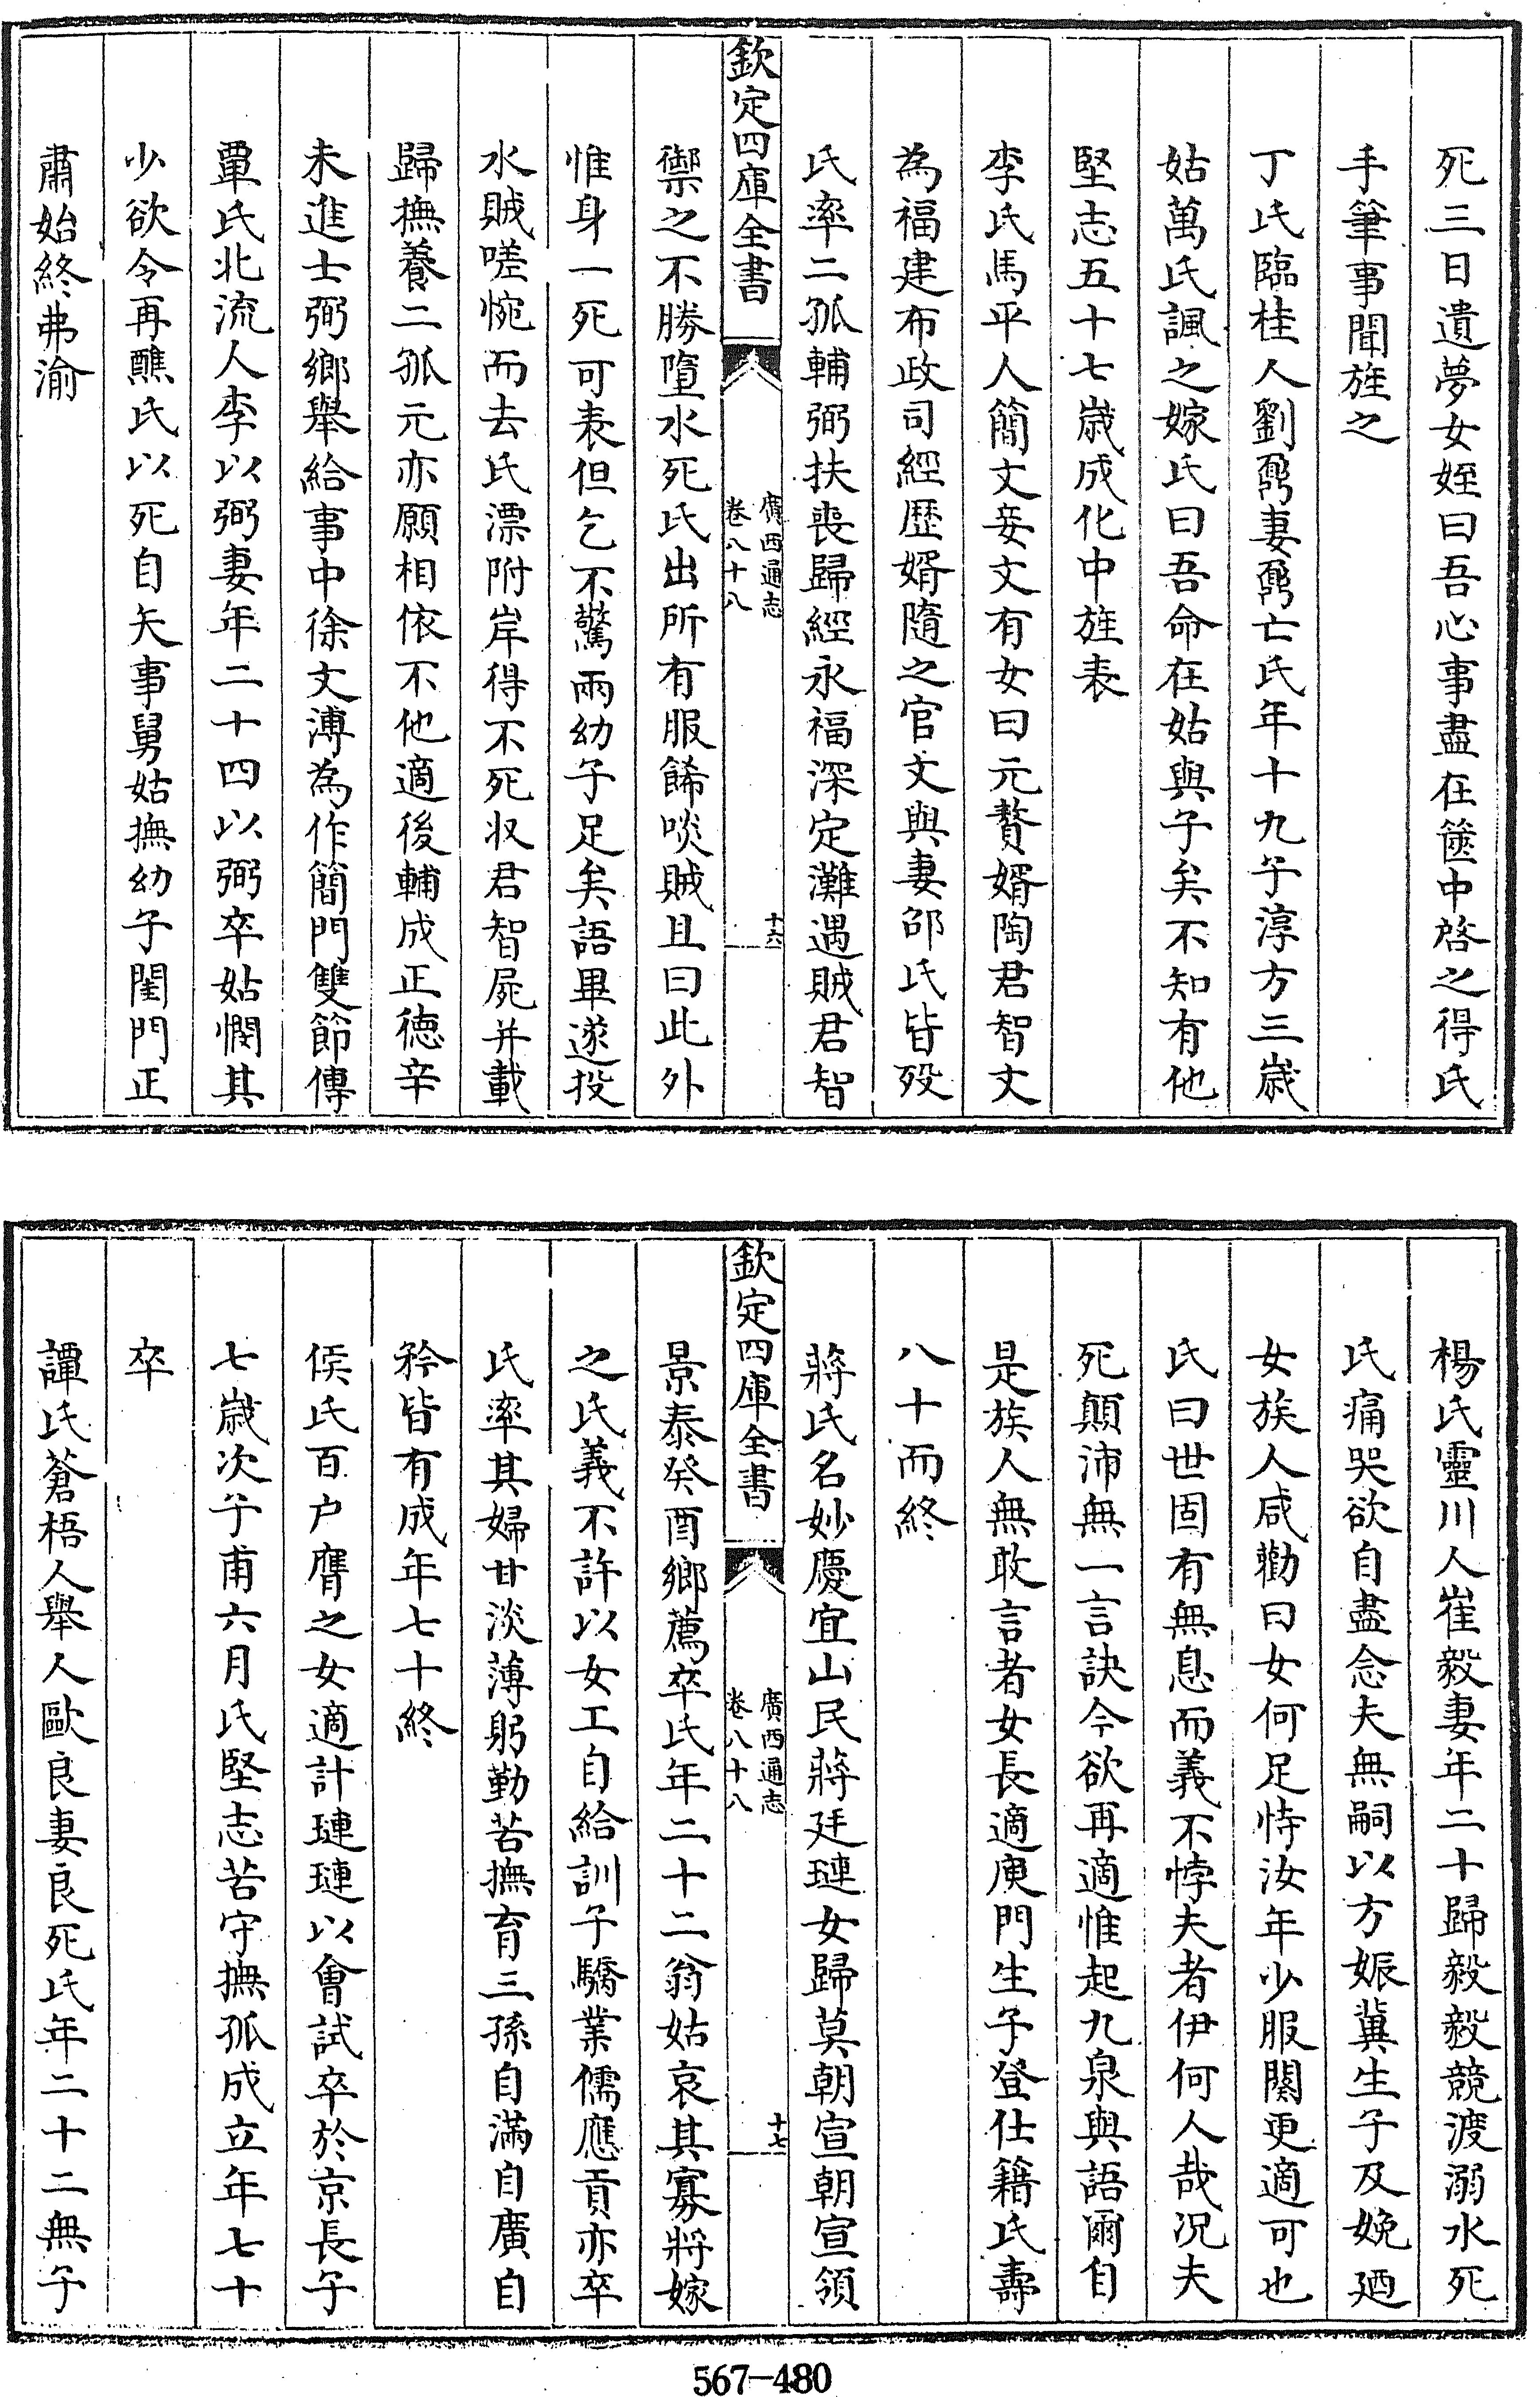 死三日遺夢女姪曰吾心事盡在篋中啓之得氏
手筆事聞旌之
丁氏臨桂人劉鄸妻鄸亡氏年十九子淳方三歳
姑萬氏諷之嫁氏曰吾命在姑與子矣不知有他
堅志五十七歳成化中旌表
李氏馬平人簡文妾文有女曰元贅婿陶君智文
為福建布政司經歴婿隨之官文與妻邵氏皆殁
氏率二孤輔弼扶喪歸經永福深定灘遇賊君智
欽定四庫全書
廣西通志
卷八十八
十六
禦之不勝墮水死氏出所有服餙啖賊且曰此外
惟身一死可表但乞不驚兩幼子足矣語畢遂投
水賊嗟惋而去氏漂附岸得不死收君智屍并載
歸撫養二孤元亦願相依不他適後輔成正徳辛
未進士弼鄉舉給事中徐文溥為作簡門雙節傳
覃氏北流人李以弼妻年二十四以弼卒姑憫其
少欲令再醮氏以死自矢事舅姑撫幼子閨門正
肅始終弗渝
楊氏靈川人崔毅妻年二十歸毅毅競渡溺水死
氏痛哭欲自盡念夫無嗣以方娠冀生子及娩廼
女族人咸勸曰女何足恃汝年少服闋更適可也
氏曰世固有無息而義不悖夫者伊何人哉况夫
死顛沛無一言訣今欲再適惟起九泉與語爾自
是族人無敢言者女長適庾門生子登仕籍氏壽
八十而終
蔣氏名妙慶宜山民蔣廷璉女歸莫朝宣朝宣領
欽定四庫全書
廣西通志
卷八十八
十七
景泰癸酉鄉薦卒氏年二十二翁姑哀其寡將嫁
之氏義不許以女工自給訓子驕業儒應貢亦卒
氏率其婦甘淡薄躬勤苦撫育三孫自滿自廣自
矜皆有成年七十終
侯氏百户膺之女適計璉璉以會試卒於京長子
七歳次子甫六月氏堅志苦守撫孤成立年七十
卒
譚氏蒼梧人舉人歐良妻良死氏年二十二無子
567-480